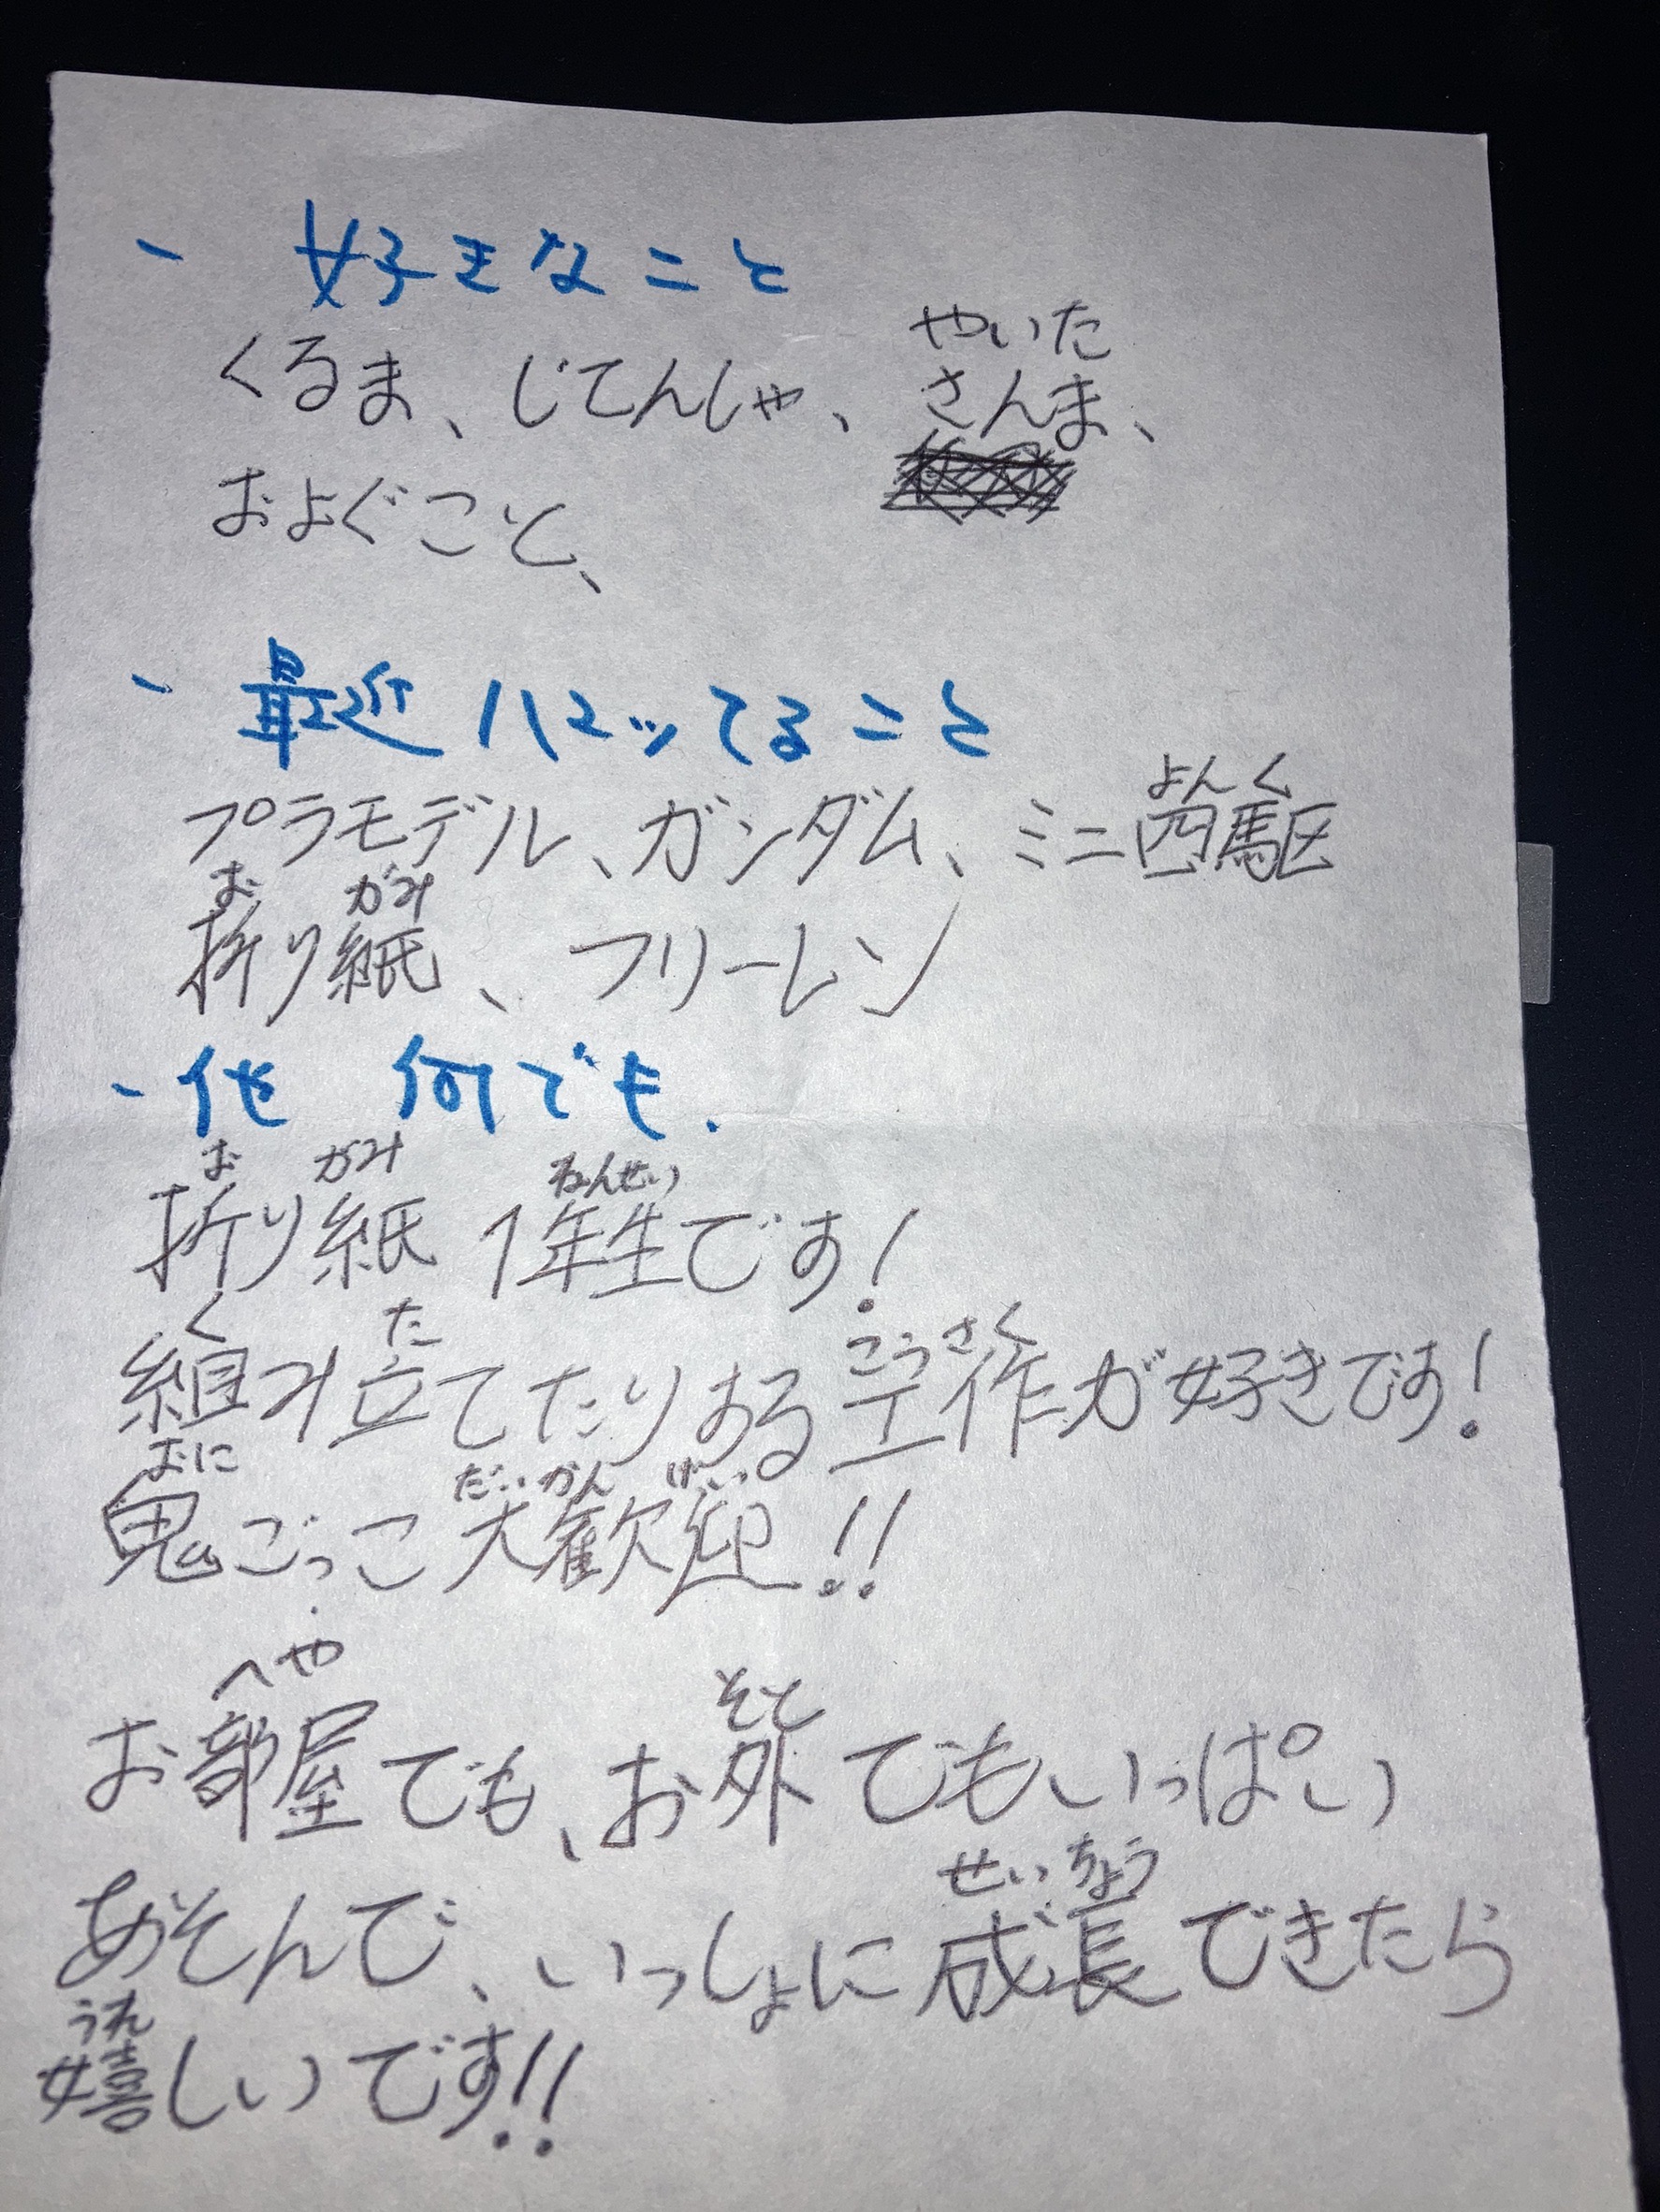 、 好きなこと
やいた
くるま、じてんしゃ、さんま、
およぐこと、
、 最近ハマッてること
よんく
プラモデル、ガンダム、ミニ四駆
お がみ
折り紙、フリーレン
、他 何でも.
お がみ ねんせい
折り紙 1年生です!
く た こうさく
組み立てたりする工作が好きです!
おに だいかんげい
鬼ごっこ大歓迎!!
へや そと
お部屋でも、お外でもいっぱい
せいちょう
あそんで、いっしょに成長できたら
うれ
嬉しいです!!